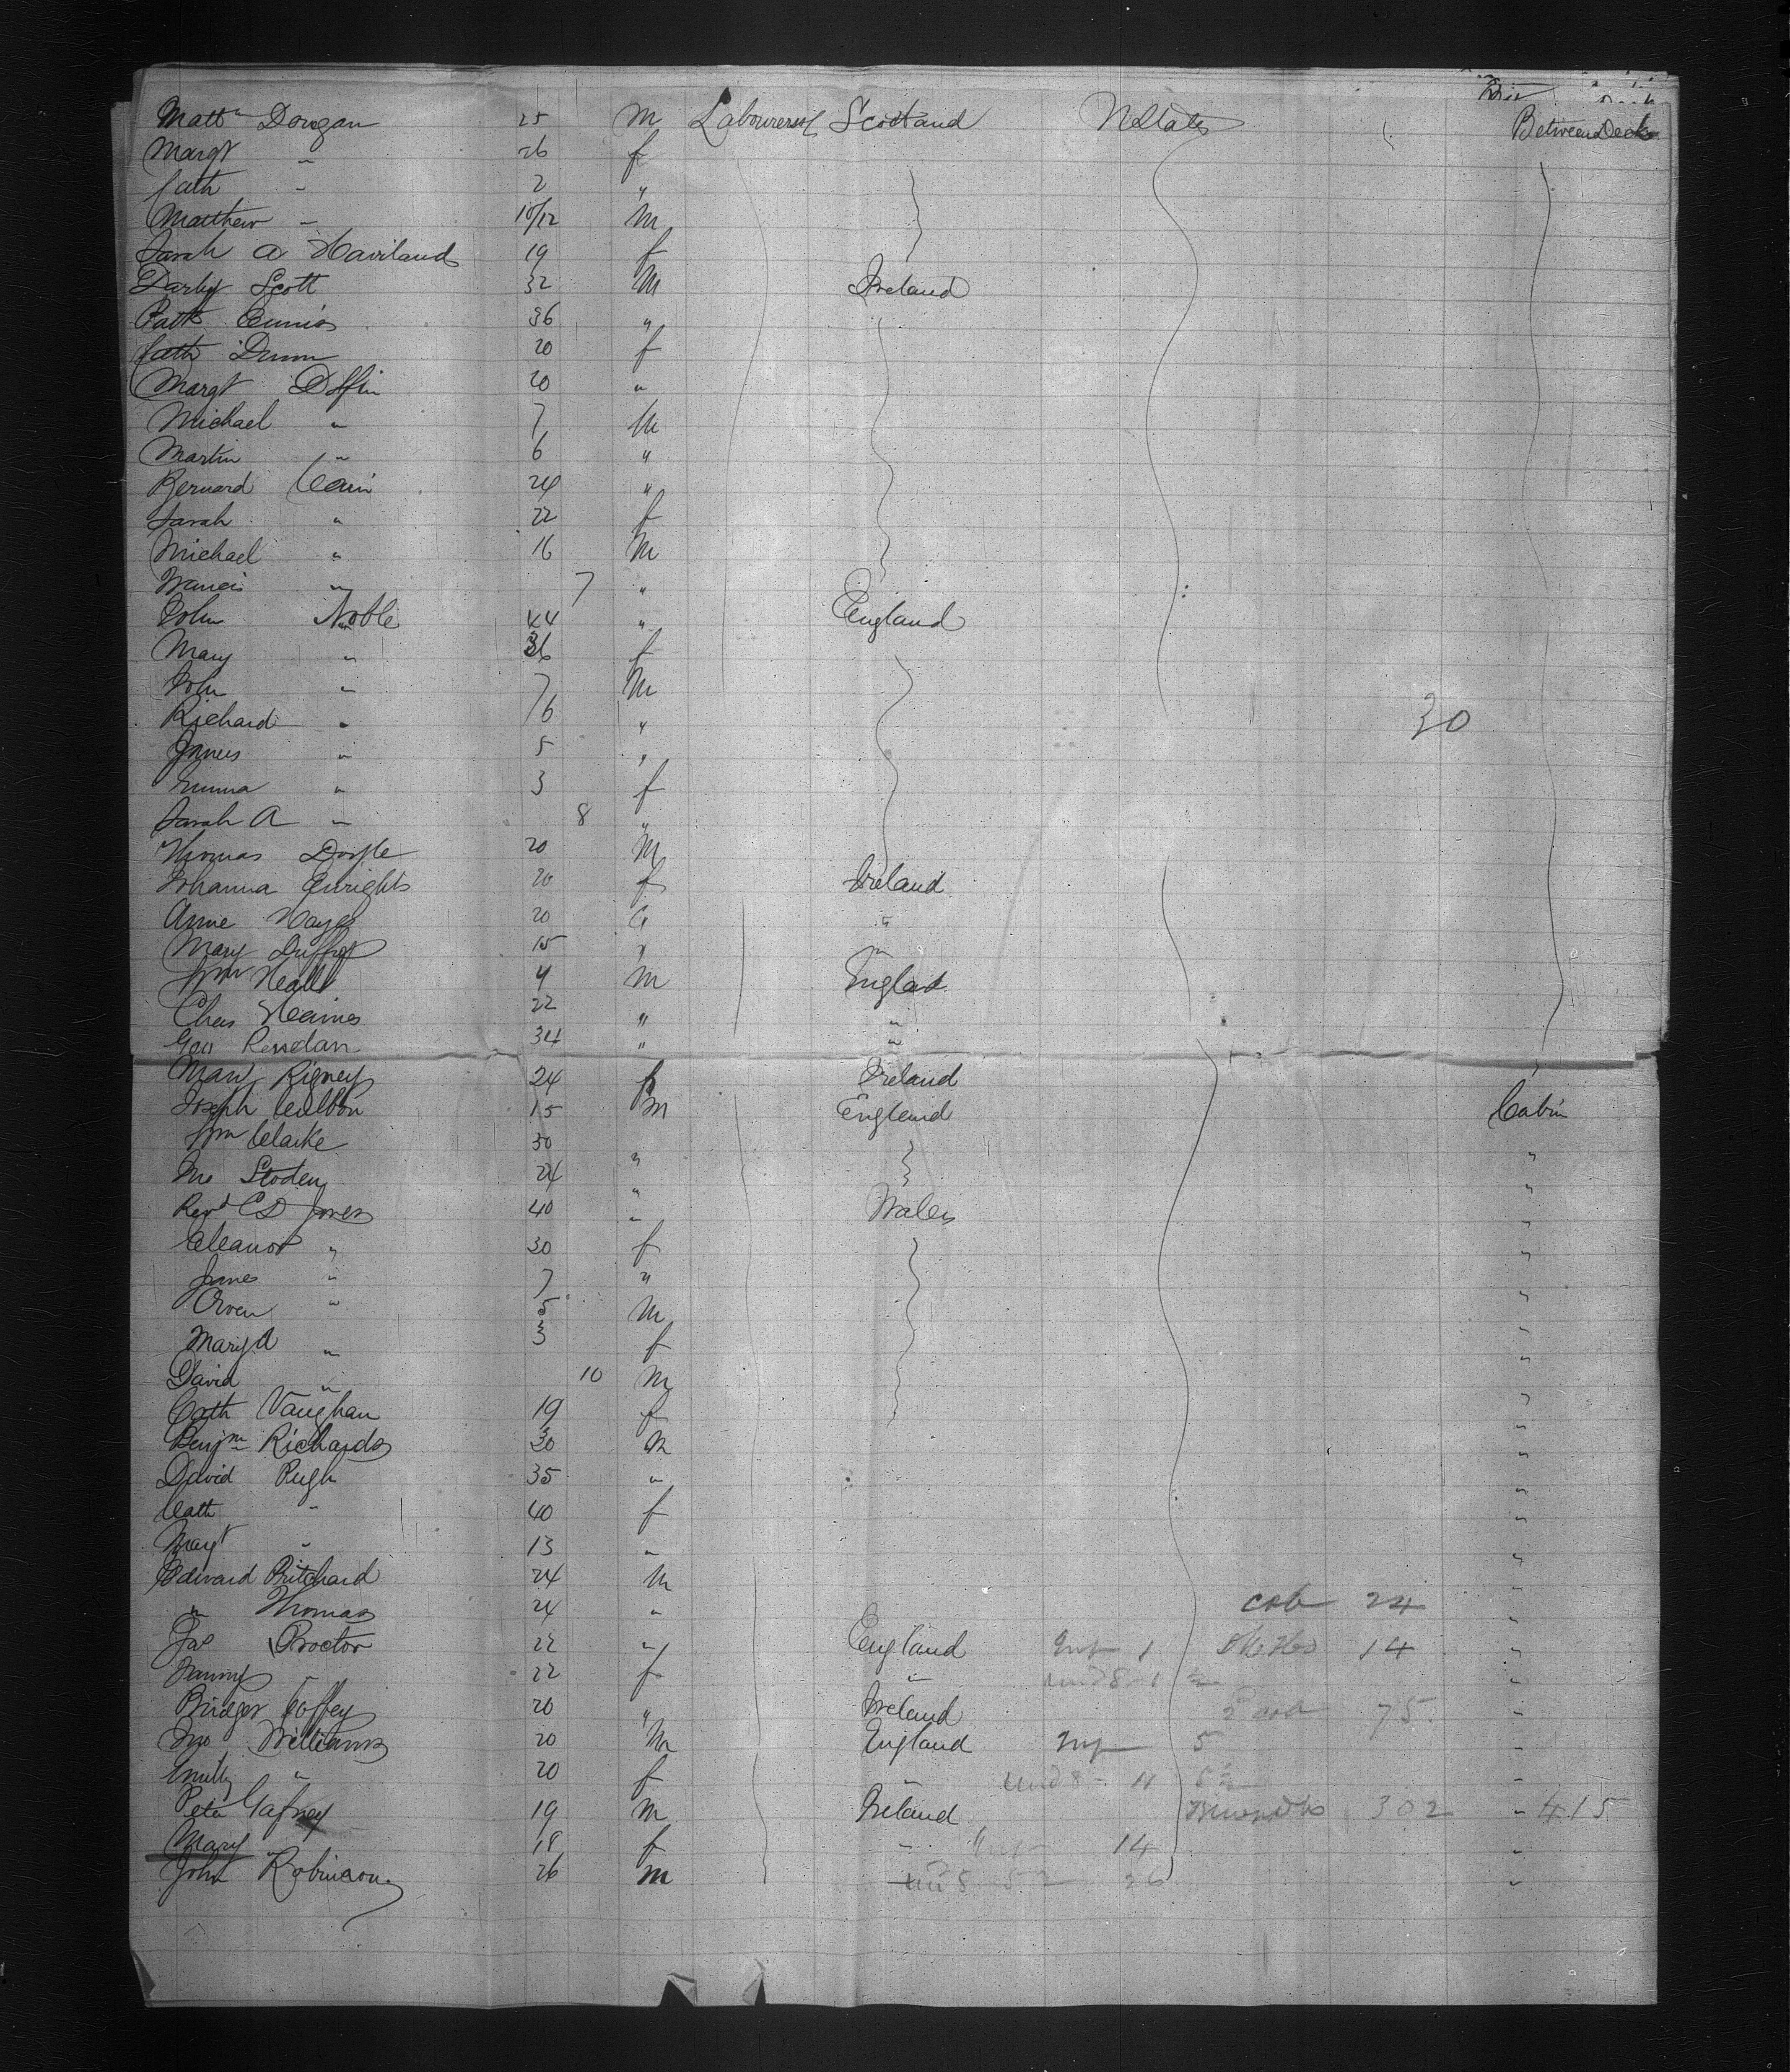 Matt<sup>w</sup> Dougan 25 M Labourers &c Scotland U States Between Decks
Margt " 26 f
Cath " 2 "
Matthew " 10/12 M
Sarah A Haviland 19 f
Darby Scott 32 M Ireland
Patk Ennis 36 "
Cath Dunn 20 f
Margt Diffin 20 "
Michael " 7 M
Martin " 6 "
Bernard Cain 24 "
Sarah " 22 f
Michael " 16 M
Francis " 7 "
John Noble 44 " England
Mary " 36 f
John " 7 M
Richard " 6 " 30
James " 5 "
Emma " 3 f
Sarah A " 8 "
Thomas Doyle 20 M
Johanna Enrights 20 f Ireland
Anne Hayes 20 " "
Mary Duffy 15 " "
Wm Neall 4 M England
Chas Haines 22 " "
Geo 34 " "
Mary Rigney 24 f Ireland
Joseph 15 M England Cabin
Wm Clarke 50 " "
Jno Stoden 24 " "
Revd C D Jones 40 " Wales "
Eleanor " 30 f "
" 7 " "
Owen " 5 M "
Mary A " 3 f "
David " 10 M "
Cath Vaughan 19 f "
Benjm Richards 30 M "
David Pugh 35 " "
Cath " 40 f "
Margt " 13 " "
Edward Pritchard 24 M "
" Thomas 24 " cab 24 "
Jas Proctor 22 " England Inf 1 14 "
Fanny " 22 f " und 8 - 1 "
Bridget Coffey 20 " Ireland 2 cab 75 "
Jno Williams 20 M England Inf 5 "
Emily " 20 f " und 8 - 11 "
Peter Gafney 19 M Ireland 302 " 415
Mary 18 f " Inf 14 "
John Robinson 26 M und 8 "